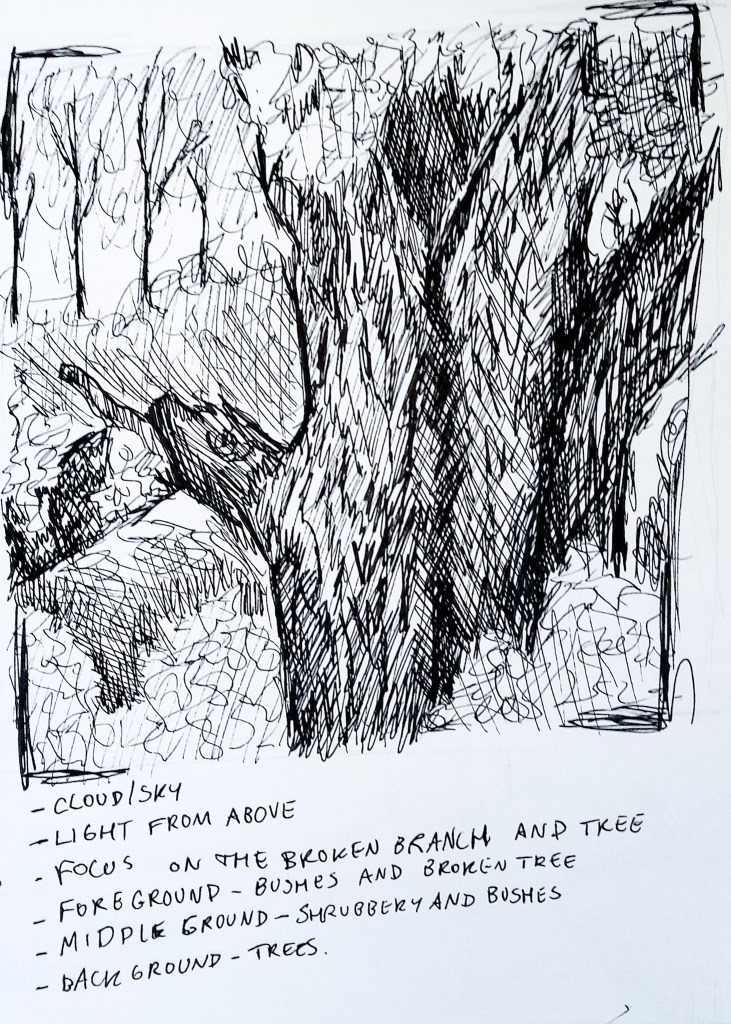 - CLOUD/SKY
- LIGHT FROM ABOVE
- FOCUS ON THE BROKEN BRANCH AND TREE
- FOREGROUND - BUSHES AND BROKEN TREE
- MIDDLE GROUND - SHRUBBERY AND BUSHES
- BACKGROUND - TREES.